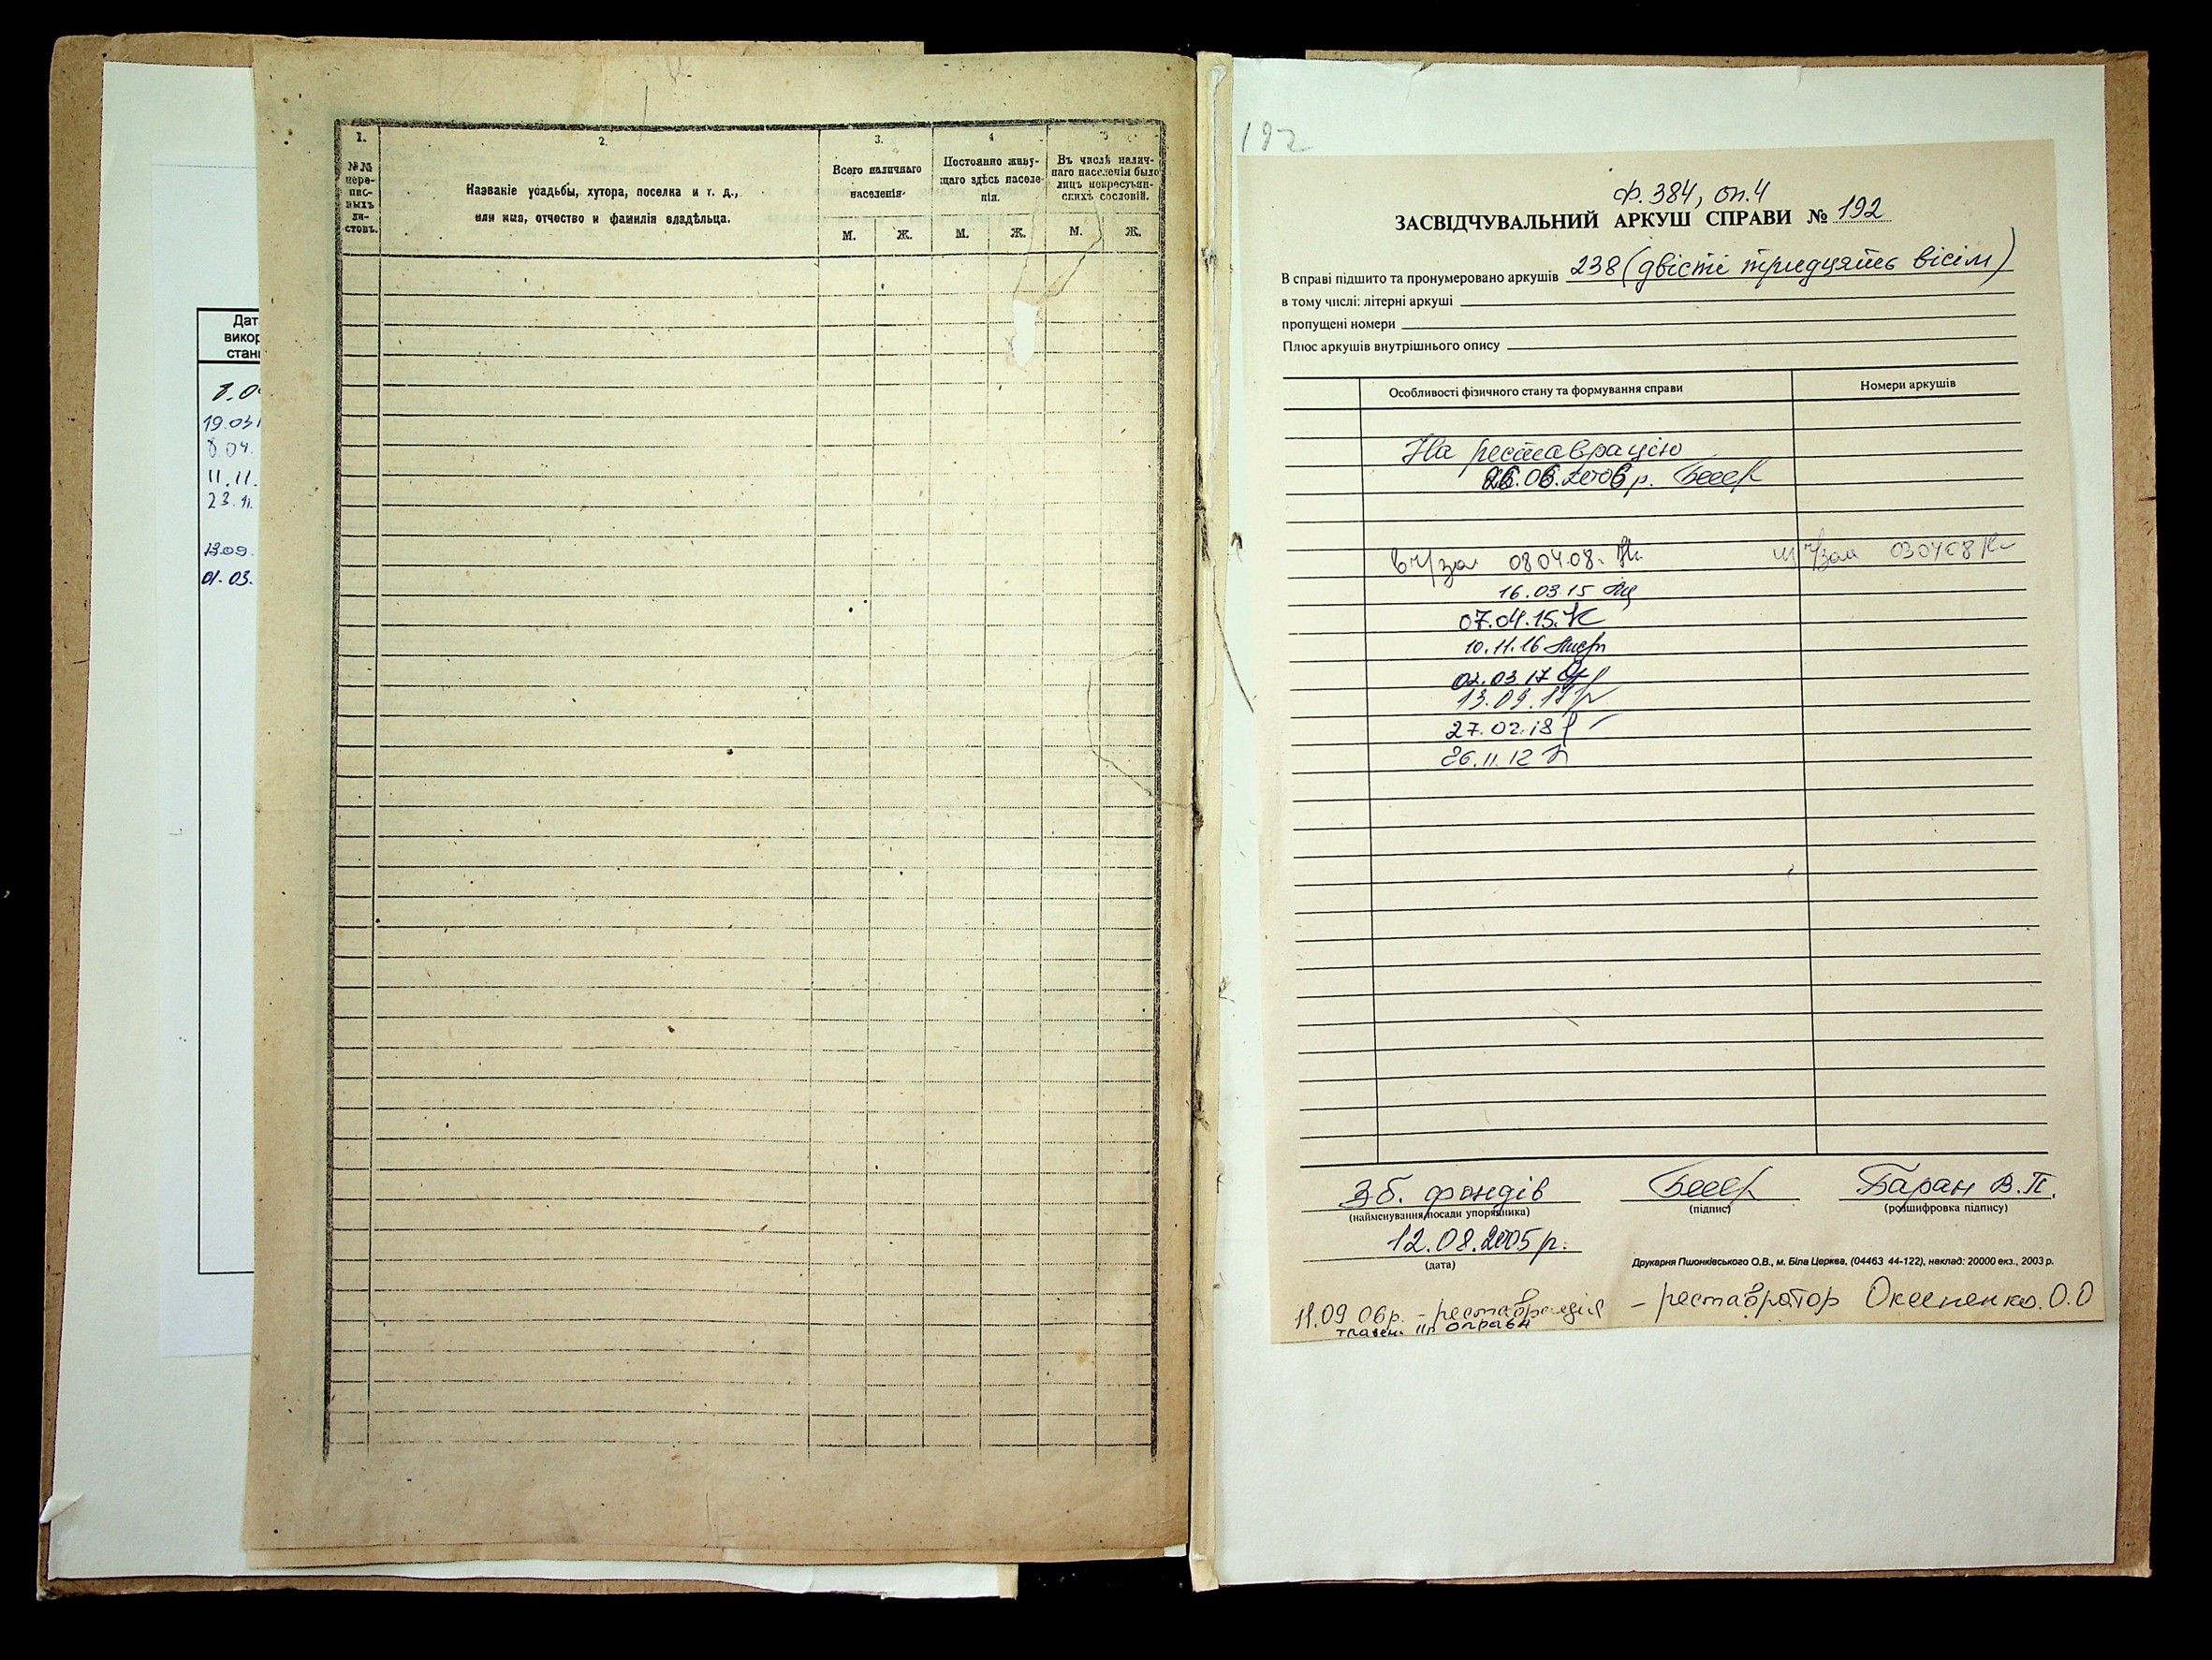 Дат
викор
стан
19.03
8.04.
11.11.
23.11.
13.09.
01.03.
1.
№№ пере-
пис-
ныхъ
ли-
стовъ.
2.
Названіе усадьбы, хутора, поселка и т. д.,
или имя, отчество и фамилія владѣльца.
3.
Всего наличнаго
населенія.
М. Ж.
4
Постоянно живу-
щаго здѣсь населе-
нія.
М. Ж.
5
Въ числѣ налич-
наго населенія было
лицъ некрестьян-
скихъ сословій.
М. Ж.
192
Ф. 384, оп. 4
ЗАСВІДЧУВАЛЬНИЙ АРКУШ СПРАВИ № 192
В справі підшито та пронумеровано аркушів 238 (двісті тридцять вісім)
в тому числі: літерні аркуші
пропущені номери
Плюс аркушів внутрішнього опису
Особливості фізичного стану та формування справи
Номери аркушів
На реставрацію
26.06.2006 р.
в ч/зал 080408.
ч/зал 030408
16.03.15
07.04.15.
10.11.16
02.03 17
13.09.17
27.02.18
26.11.12
Зб. фондів
Баран В.П.
(найменування посади упорядника)
(підпис)
(розшифровка підпису)
12.08.2005 р.
(дата)
Друкарня Пшонківського О.В., м. Біла Церква, (04463 44-122), наклад: 20000 екз., 2003 р.
11.09 06р. - реставрація - реставратор О.О
оправи